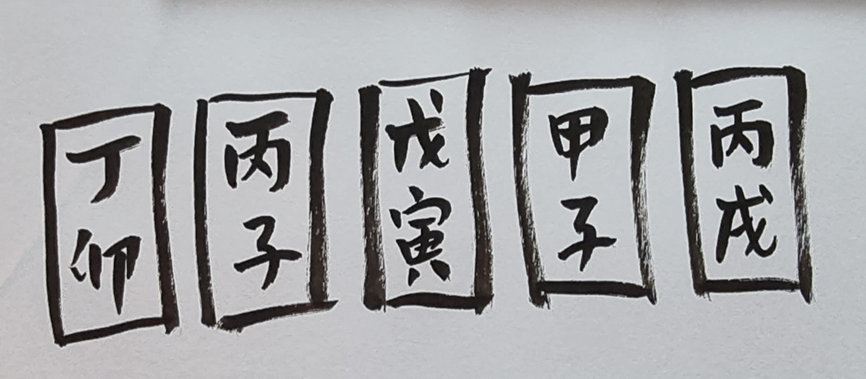 丁卯
丙子
戊寅
甲子
丙戌